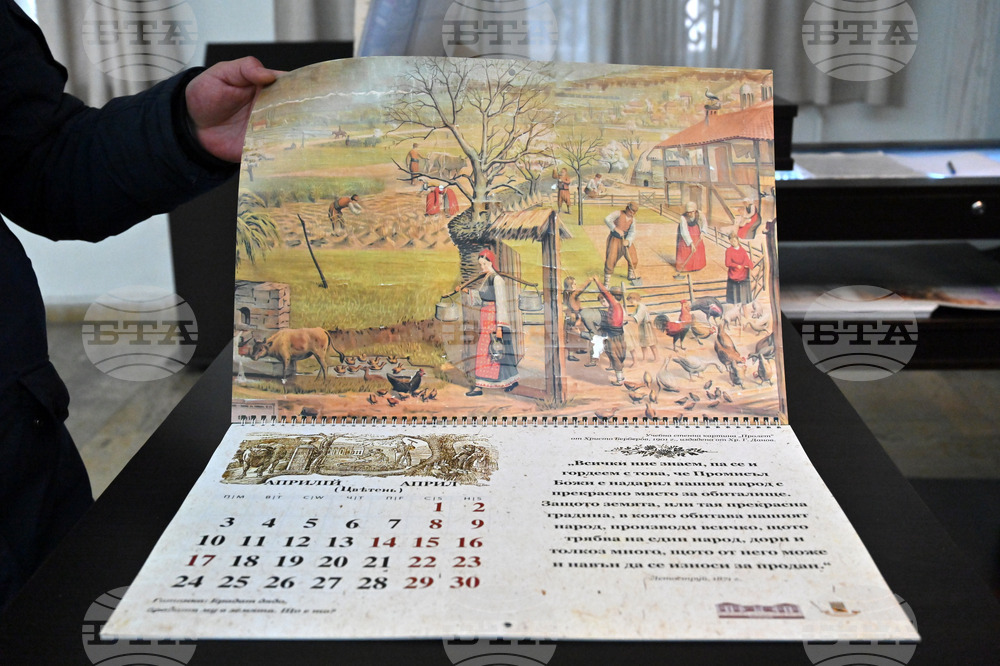 БТА БТА БТА
Учебна стенна картина „Пролет“
от Христо Берберов, 1901 г., издадена от Хр. Г. Данов.
АПРИЛІЙ АПРИЛ
(Цвѣтень)
П|М В|Т С|W Ч|Т П|F С|S Н|S
1 2
3 4 5 6 7 8 9
10 11 12 13 14 15 16
17 18 19 20 21 22 23
24 25 26 27 28 29 30
Гатанка: Брадат дядо,
брадата му в земята. Що е то?
„Всички ние знаем, па се и
гордеем с това, че Промисъл
Божи е надарил нашия народ с
прекрасно място за обиталище.
Защото земята, или тая прекрасна
градина, в която обитава нашият
народ, производи всичко, щото
трябва на един народ, дори и
толкоз много, щото от него може
и навън да се износи за продан.“
Летоструй, 1871 г.
БТА БТА БТА
БТА БТА БТА